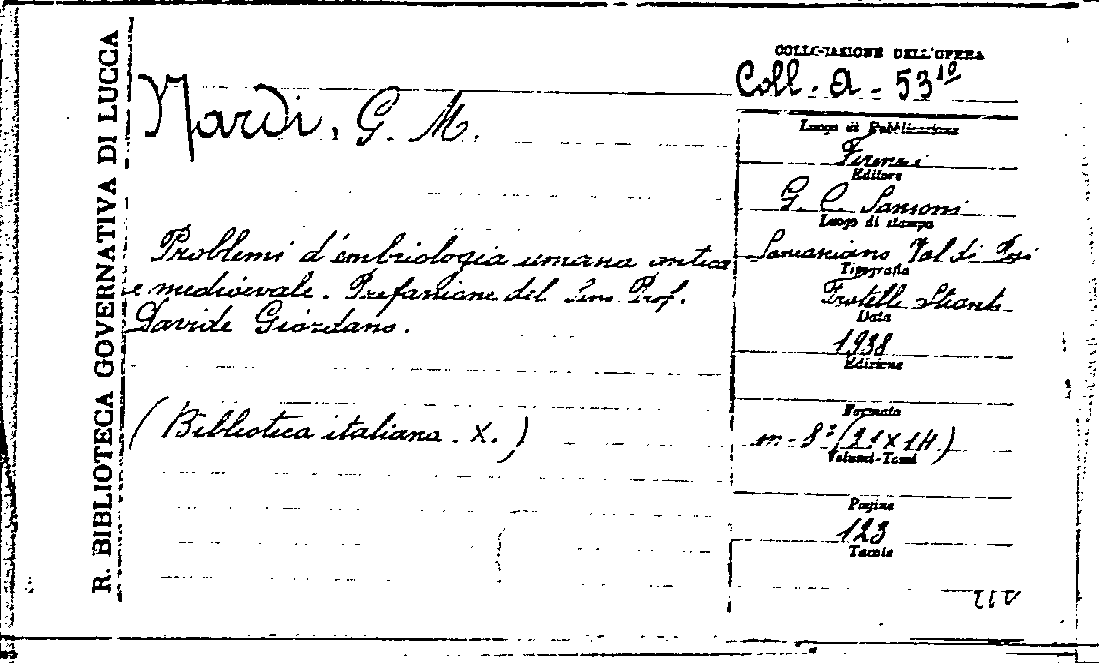 R. BIBLIOTECA GOVERNATIVA DI LUCCA
Nardi, G. M.
Problemi d'embriologia umana antica
e medioevale. Prefazione del Sen. Prof.
Davide Giordano.
(Biblioteca italiana. X.)
COLLOCAZIONE DELL'OPERA
Coll. A - 53 10
Luogo di Pubblicazione
Firenze
Editore
G. C. Sansoni
Luogo di stampa
Sancasciano Val di Pesa
Tipografia
Fratelli Stianti
Data
1938
Edizione
Formato
in-8° (21x14)
Volumi-Tomi
Pagine
123
Tavole